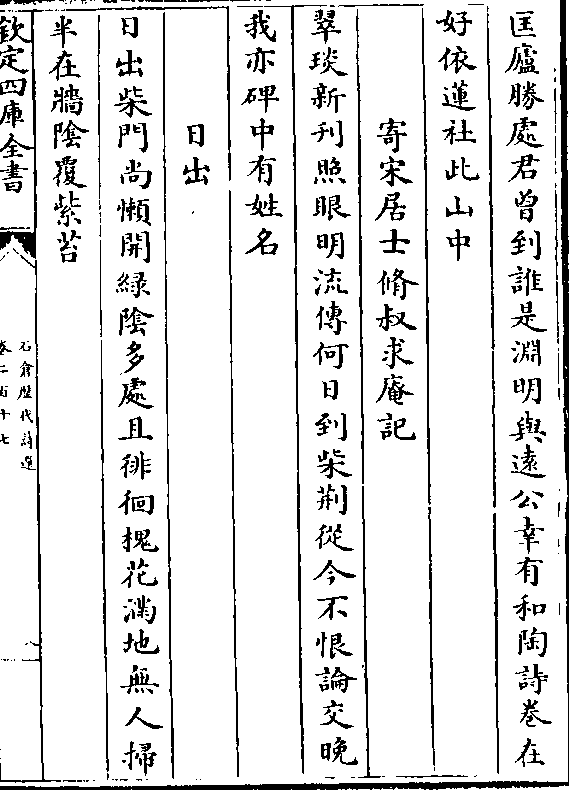 匡廬勝處君曾到誰是淵明與遠公幸有和陶詩卷在
好依蓮社此山中
寄宋居士脩叔求庵記
翠琰新刋照眼明流傳何日到柴荆從今不恨論交晚
我亦碑中有姓名
日出
日出柴門尚懶開綠隂多處且徘徊槐花滿地無人掃
半在牆隂覆紫苔
欽定四庫全書
石倉歴代詩選
卷二百十七
八